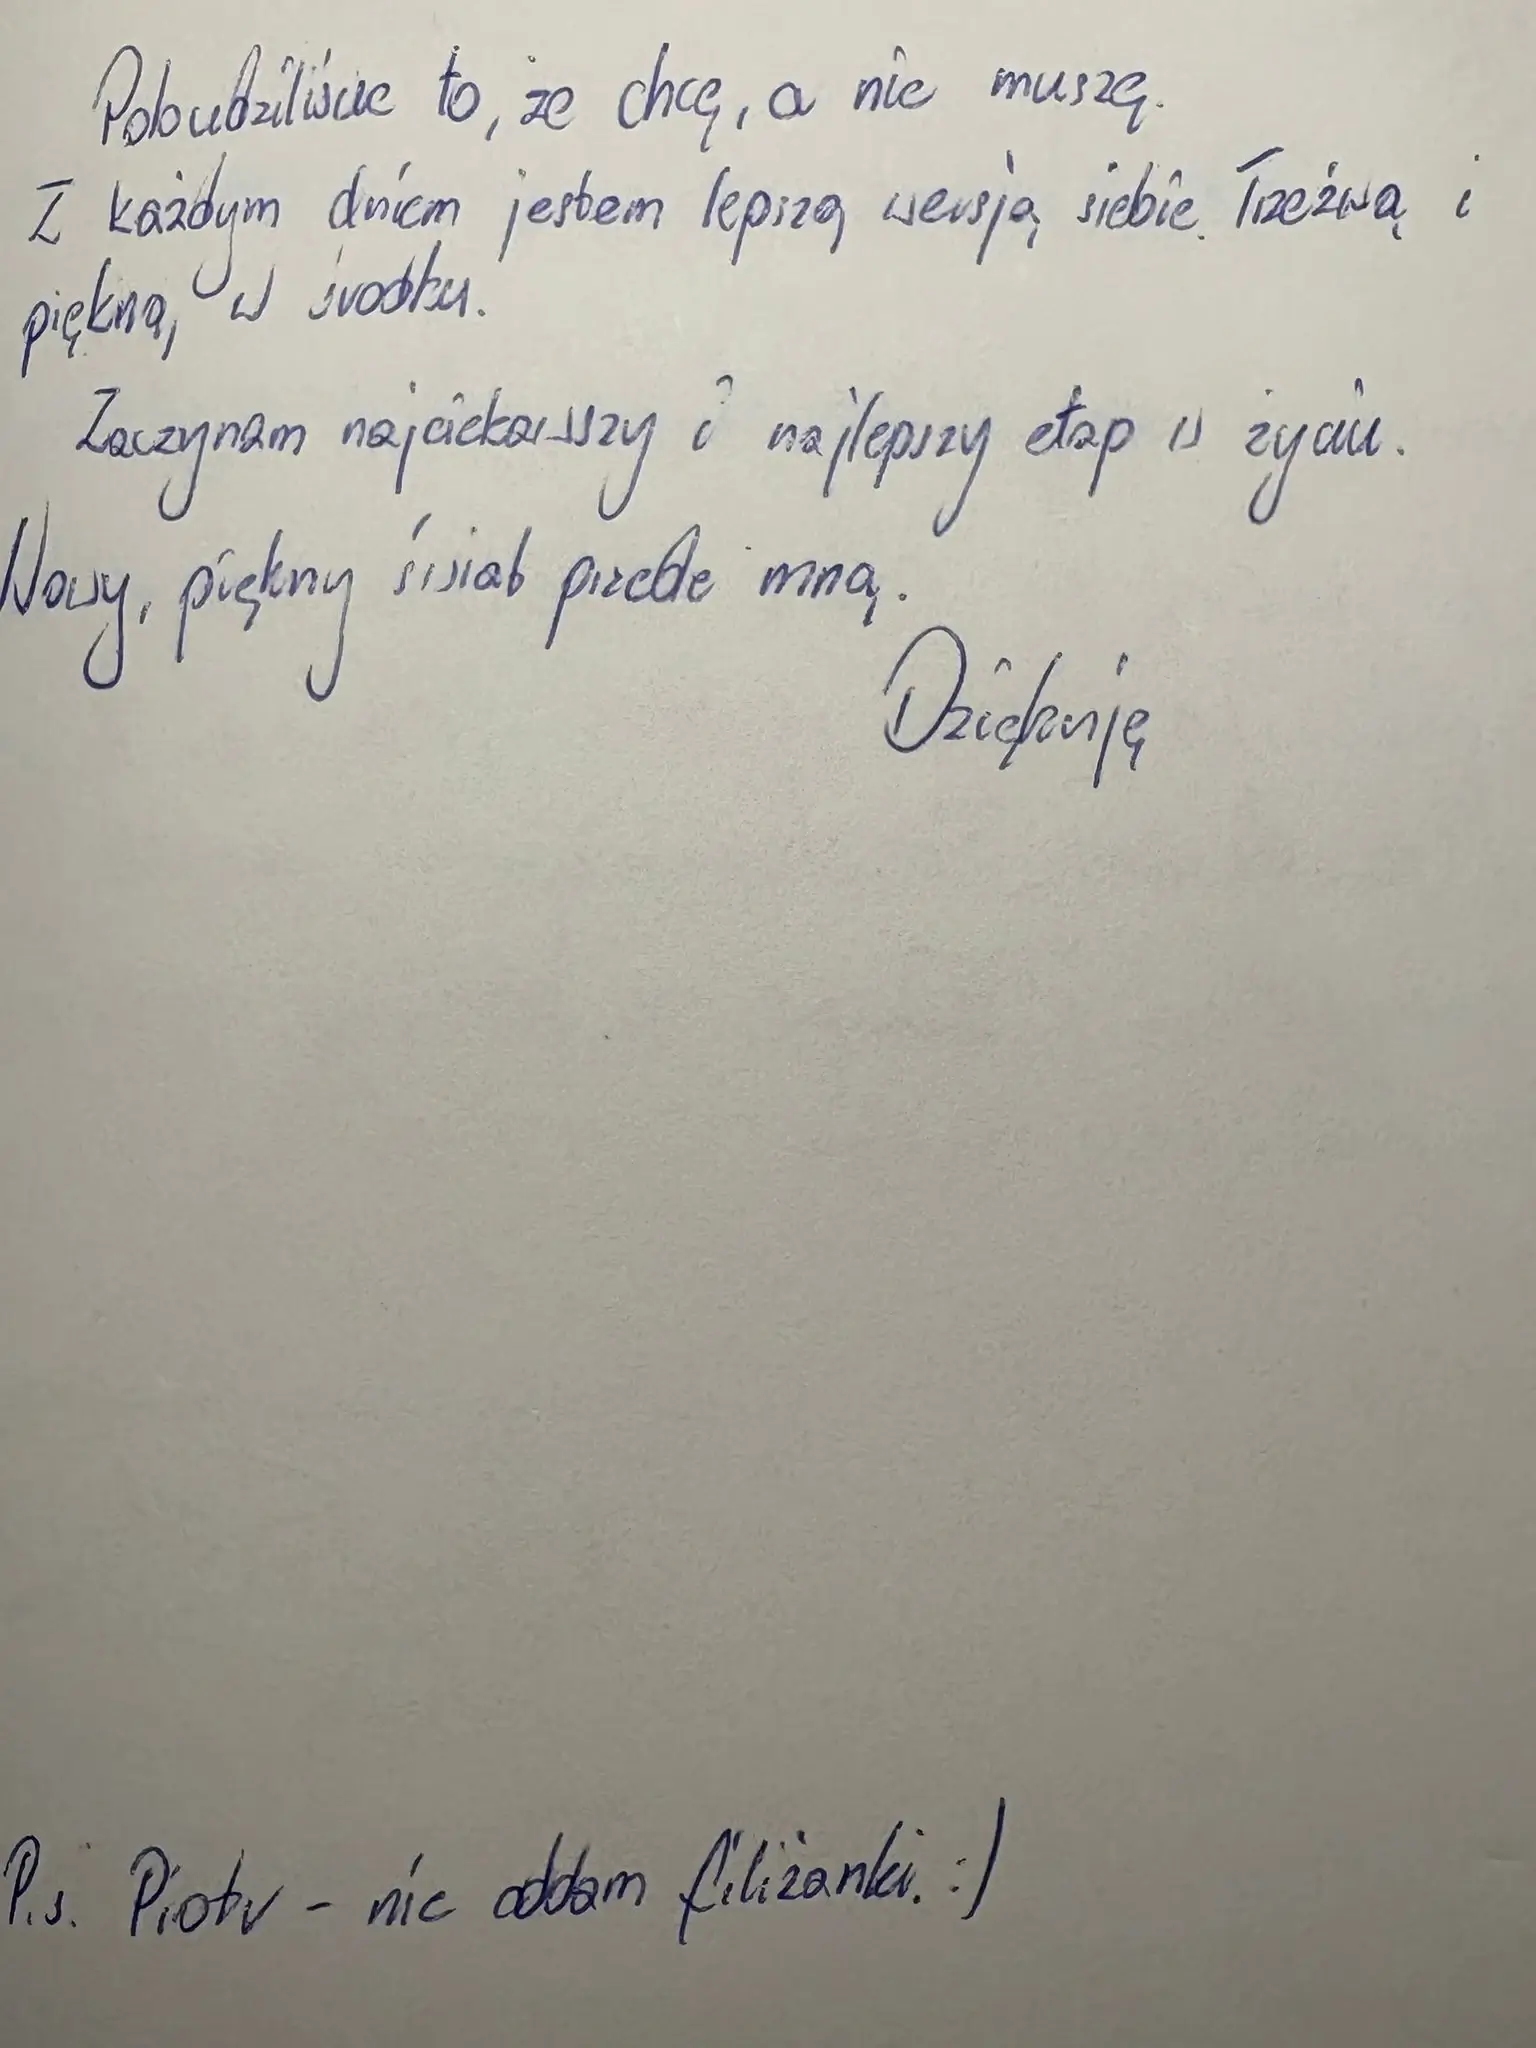 Pobudziliście to, że chcę, a nie muszę.
Z każdym dniem jestem lepszą wersją siebie. Trzeźwą i
piękną w środku.
Zaczynam najciekawszy i najlepszy etap w życiu.
Nowy, piękny świat przede mną.
Dziękuję
P.s. Piotr - nie oddam filiżanki. :)